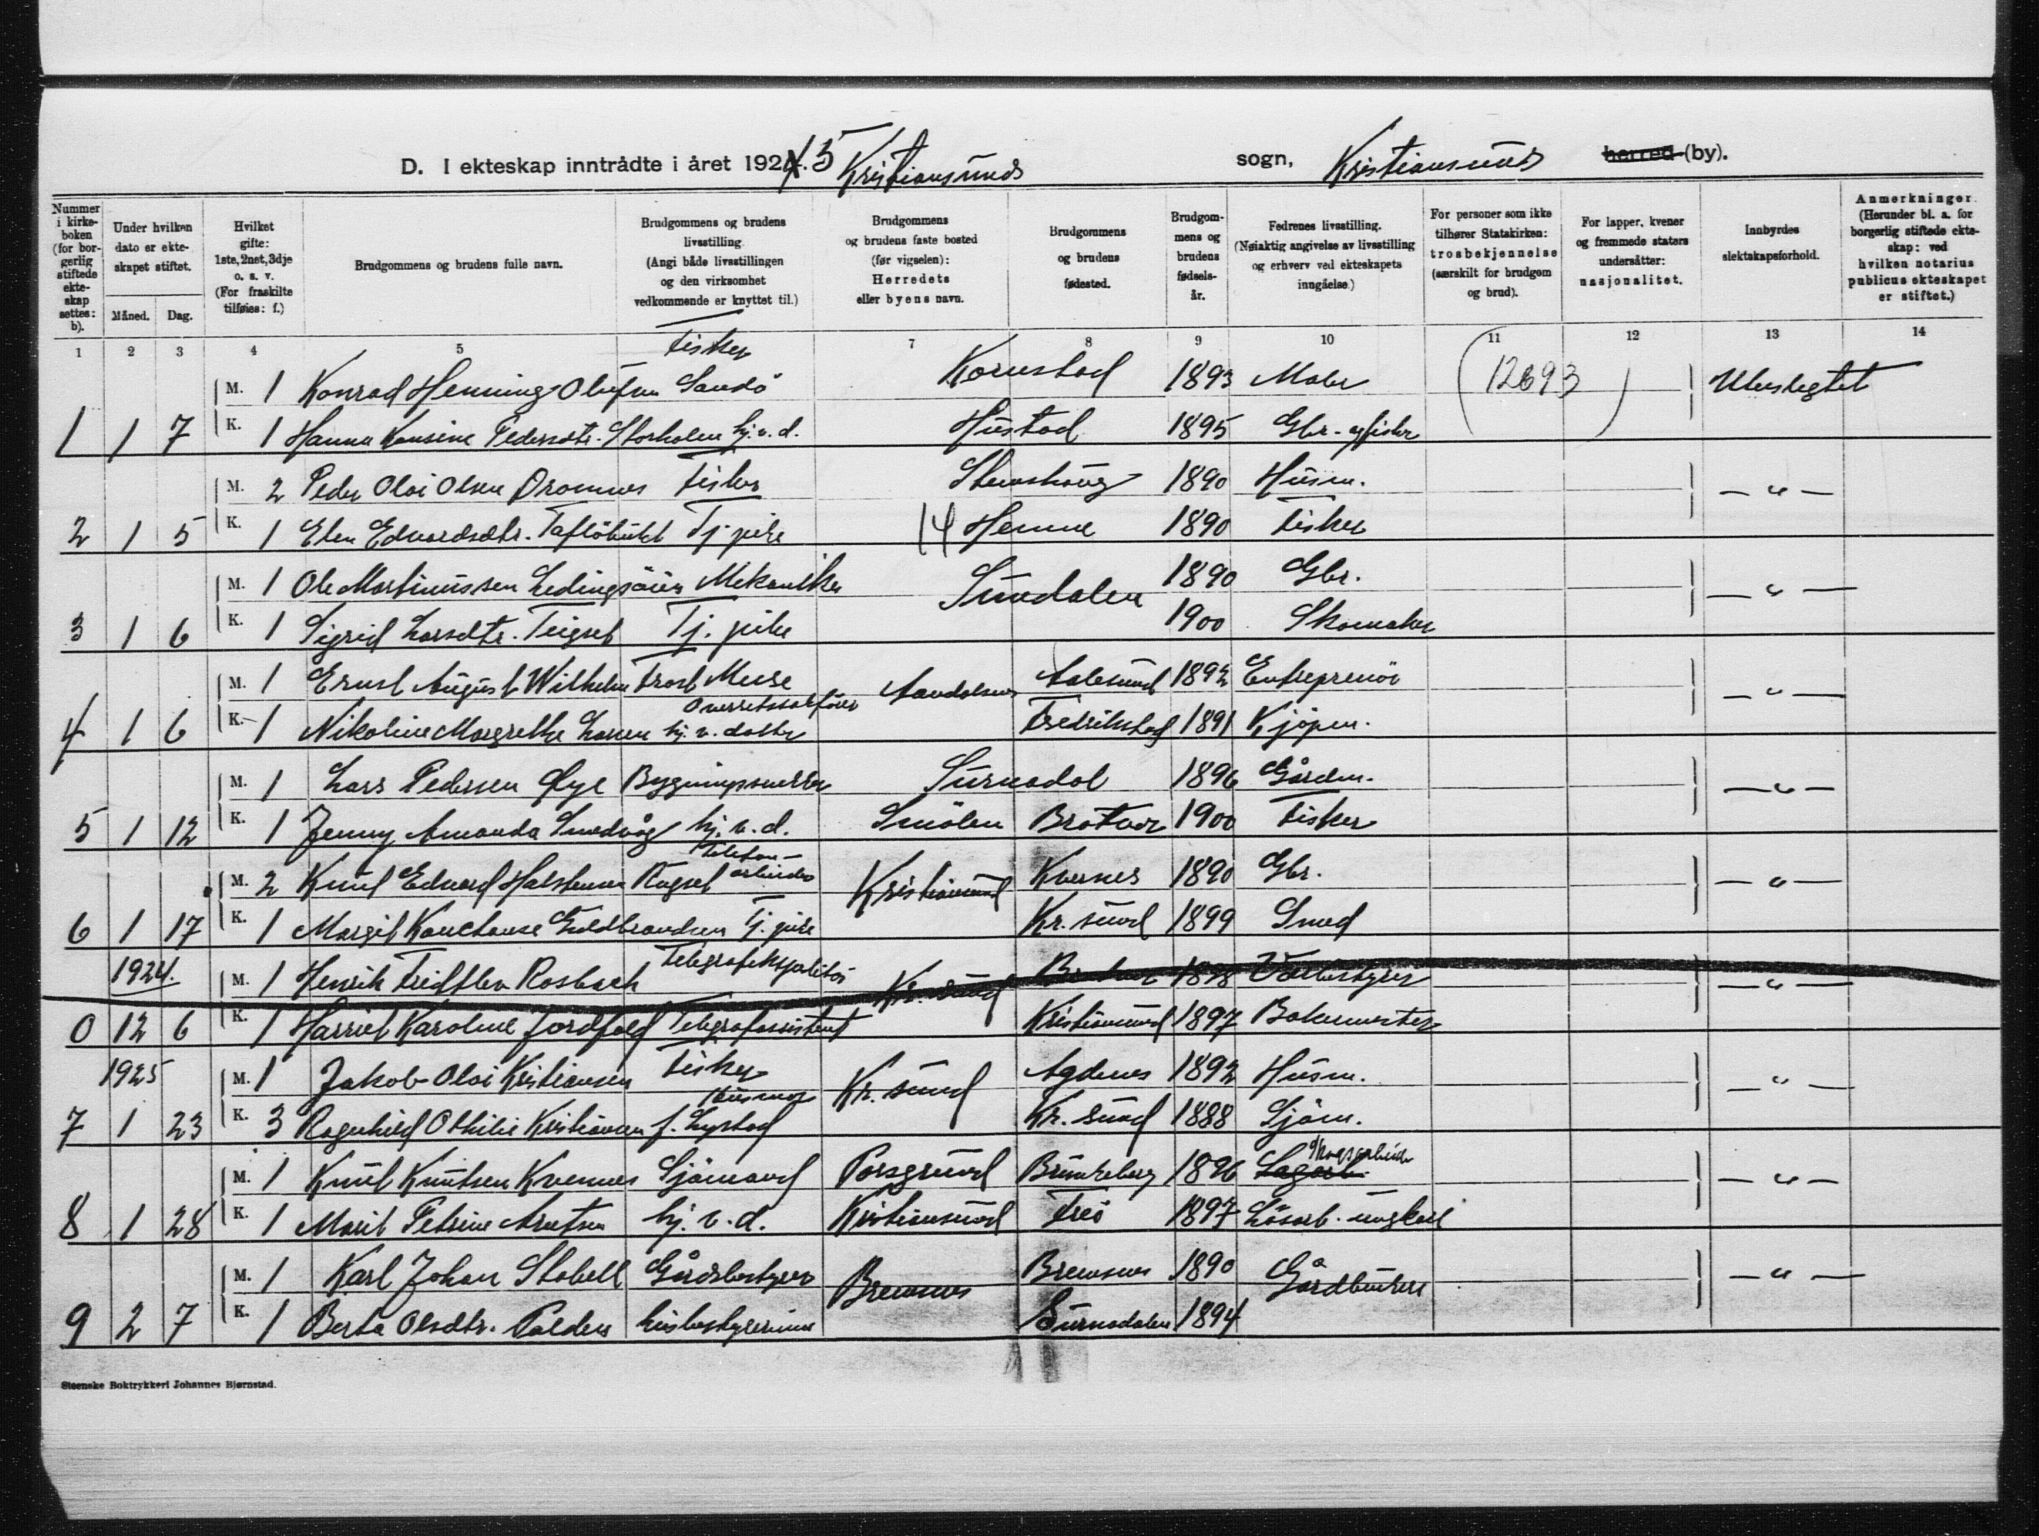 D. I ekteskap inntrådte i året 1924. 5 Kristiansunds sogn, Kristiansunds herred (by).
Nummer i kirkeboken (for borgerlig stiftede ekteskap settes: b).
Under hvilken dato er ekteskapet stiftet.
Måned. Dag.
Hvilket gifte: 1ste, 2net, 3dje o. s. v. (For fraskilte tilføies: f.)
Brudgommens og brudens fulle navn.
Brudgommens og brudens livsstilling (Angi både livsstillingen og den virksomhet vedkommende er knyttet til.)
Brudgommens og brudens faste bosted (før vigselen): Herredets eller byens navn.
Brudgommens og brudens fødested.
Brudgommens og brudens fødselsår.
Fedrenes livsstilling. (Nøiaktig angivelse av livsstilling og erhverv ved ekteskapets inngåelse.)
For personer som ikke tilhører Statskirken: trosbekjennelse (særskilt for brudgom og brud).
For lapper, kvener og fremmede staters undersåtter: nasjonalitet.
Innbyrdes slektskapsforhold.
Anmerkninger. (Herunder bl. a. for borgerlig stiftede ekteskap: ved hvilken notarius publicus ekteskapet er stiftet.)
1 2 3 4 5 7 8 9 10 11 12 13 14
Fisker
M. 1 Konrad Henning Olufsen Sandö Kornstad 1893 Maler (12693) Ubeslegtet
1 1 7 K. 1 Hanna Konsine Pedersdtr. Storholen hj.v.d. Hustad 1895 Gbr. og fisker
M. 2 Peder Olai Olsen Dromnes Fisker Stemshaug 1890 Husm. — " —
2 1 5 K. 1 Elen Edvardsdtr. Taftöbukt Tj. pike 14 Hemne 1890 Fisker
M. 1 Ole Martinussen Ledingsöien Mekaniker Sundalen 1890 Gbr. — " —
3 1 6 K. 1 Sigrid Larsdtr. Teigset Tj. pike 1900 Skomaker
M. 1 Ernst August Wilhelm Frost Overretssakförer Aandalsnes Aalesund 1892 Entreprenör — " —
4 1 6 K. 1 Nikoline Margrethe Larsen hj. v. datter Fredrikstad 1891 Kjöpm.
M. 1 Lars Pedersen Øye Bygningssnekker Surnadal 1896 Gårdm. — " —
5 1 12 K. 1 Jenny Amanda Smedvåg hj. v. d. Smölen Brattvær 1900 Fisker
M. 2 Knud Edvard Halstensen Rugset Telefonarbeider Kristiansund Kvernes 1890 Gbr. — " —
6 1 17 K. 1 Margit Konstanse Guldbrandsen Tj. pike Kr. sund 1899 Smed
1924. M. 1 Henrik Fridtlev Rosbach Kr. sund 1898 — " —
0 12 6 K. 1 Harriet Karoline Jordfald Telegrafassistent Kristiansund 1897 Bakermester
1925 M. 1 Jakob Olai Kristiansen Fisker Kr. sund Agdenes 1892 Husm. — " —
7 1 23 K. 3 Ragnhild Othilie Kristiansen f. Lystad Husmor Kr. sund 1888 Sjöm.
M. 1 Knut Knutsen Kvennes Sjömand Porsgrund Brunkeberg 1896 Skogsarbeider — " —
8 1 28 K. 1 Marit Petrine Arntsen hj. v. d. Kristiansund Frei 1897 Lösarb. ungkarl
M. 1 Karl Johan Stabell Gårdsbestyrer Bremsnes Bremsnes 1890 Gårdbruker — " —
9 2 7 K. 1 Berta Olsdtr. Polden husbestyrerinne Surnadalen 1894
Steenske Boktrykkeri Johannes Bjørnstad.